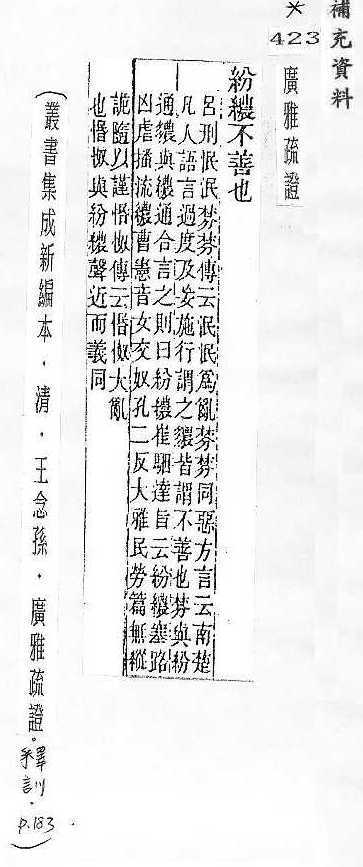 補充資料
* 423
廣雅疏證
紛繷不善也
呂刑泯泯棼棼傳云泯泯爲亂棼棼同惡方言云南楚
凡人語言過度及妄施行謂之繷皆謂不善也棼與紛
通繷與繷通合言之則曰紛繷崔駰達旨云紛繷塞路
凶虐播流繷曹憲音女交奴孔二反大雅民勞篇無縱
詭隨以謹惛怓傳云惛怓大亂
也惛怓與紛繷聲近而義同
(叢書集成新編本．清．王念孫．廣雅疏證．釋訓．
p.183)